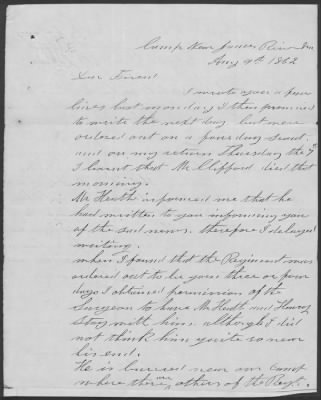 Camp Near James River Va
Aug 9th 1862
Dear Friend
I wrote you a few
lines last monday & then promised
to write the next day but were
ordered out on a four day scout
and on my return Thursday the 7th
I learnt that Mr Clifford died that
morning.
Mr Heath informed me that he
had written to you informing you
of the sad news. therefore I delayed
writing.
when I found that the Regiment was
ordered out to be gone three or four
days I obtained permission of the
Surgeon to have Mr Heath and Henry
stay with him although I did
not think him quite so near
his end.
He is buried near our camp
where there are others of the Regt.